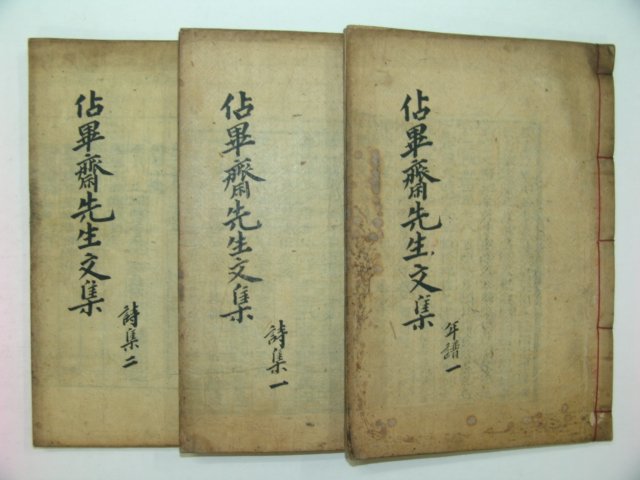 佔畢齋先生文集
年譜一
佔畢齋先生文集
詩集一
佔畢齋先生文集
詩集二